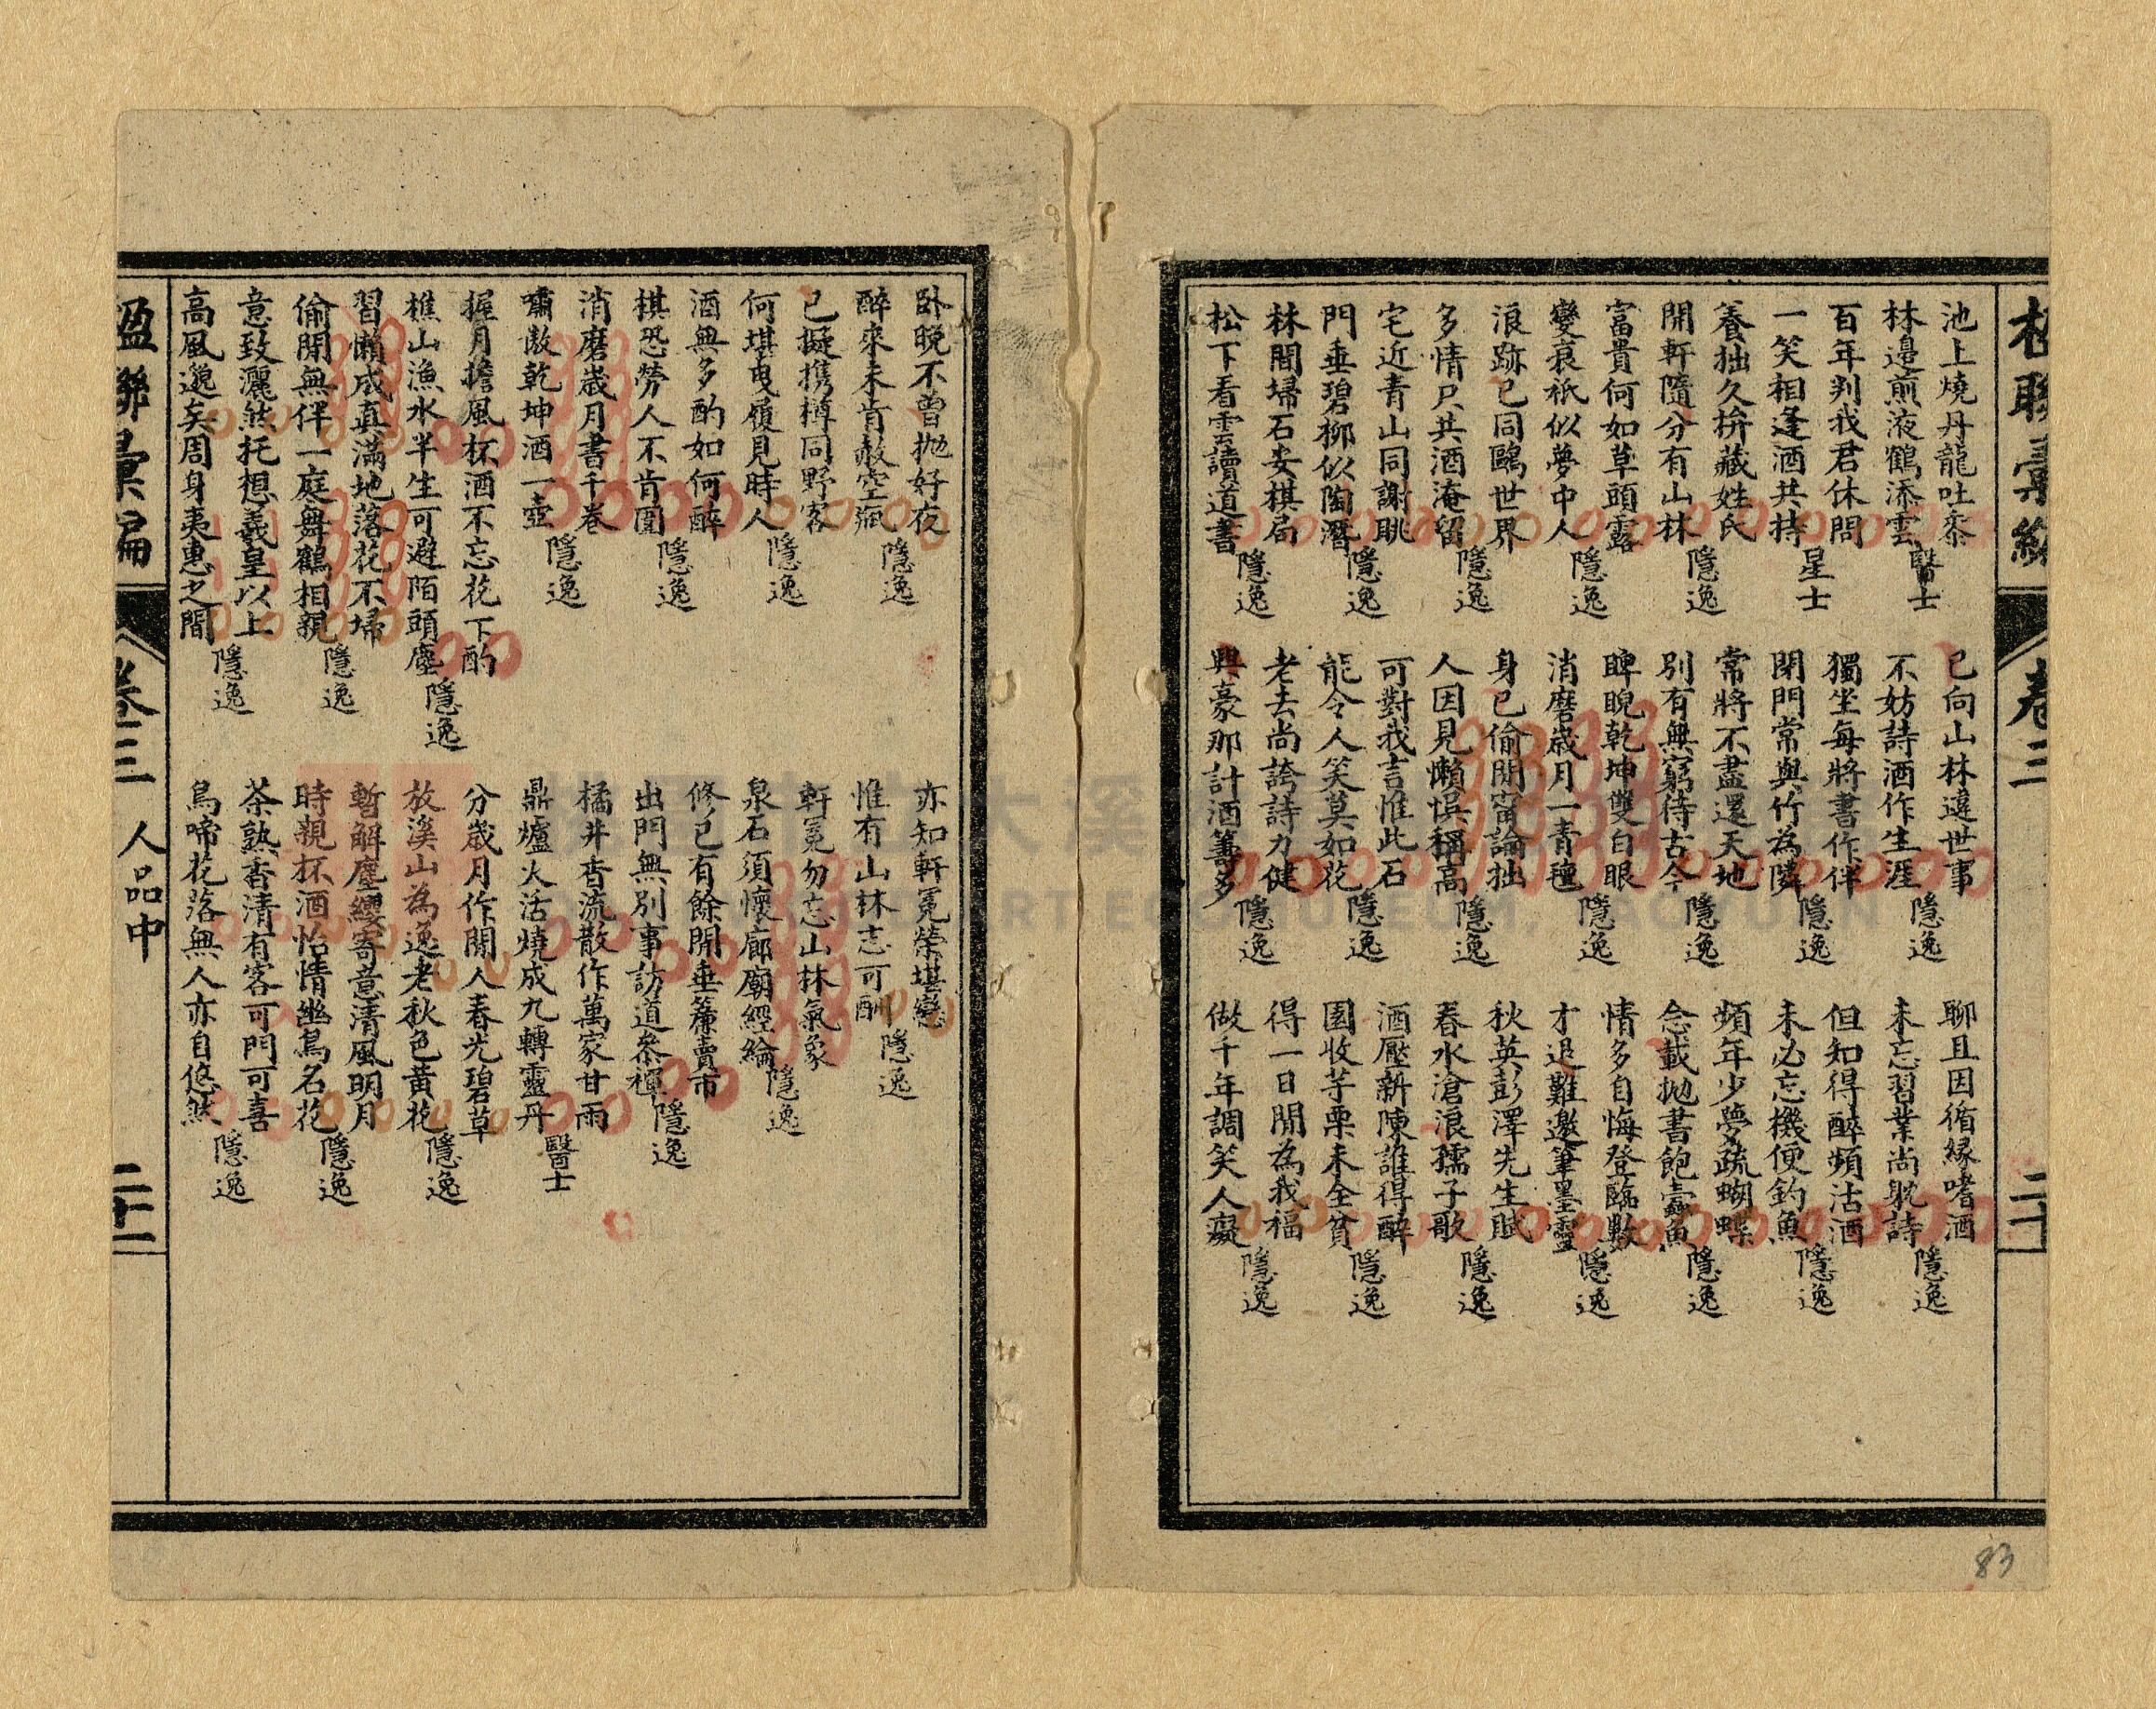 楹聯彙編
卷三
二十
池上燒丹龍吐黍
林邊煎液鶴添雲
醫士
百年判我君休問
一笑相逢酒共持
星士
養拙久拚藏姓氏
開軒隨分有山林
隱逸
富貴何如草頭露
變衰祇似夢中人
隱逸
浪跡已同鷗世界
多情只共酒淹留
隱逸
宅近青山同謝眺
門垂碧柳似陶潛
隱逸
林間埽石安棋局
松下看雲讀道書
隱逸
已向山林遠世事
不妨詩酒作生涯
隱逸
獨坐每將書作伴
閉門常與竹為隣
隱逸
常將不盡還天地
別有無窮待古今
隱逸
睥睨乾坤雙白眼
消磨歲月一青氊
隱逸
身已偷閒甯論拙
人因見懶悞稱高
隱逸
可對我言惟此石
能令人笑莫如花
隱逸
老去尚誇詩力健
興豪那計酒籌多
隱逸
聊且因循緣嗜酒
未忘習業尚躭詩
隱逸
但知得醉頻沽酒
未必忘機便釣魚
隱逸
頻年少夢疏蝴蝶
念載拋書飽蠹魚
隱逸
情多自悔登臨數
才退難邀筆墨靈
隱逸
秋英彭澤先生賦
春水滄浪孺子歌
隱逸
酒壓新陳誰得醉
園收芋栗未全貧
隱逸
得一日閒為我福
做千年調笑人癡
隱逸
83
臥晚不曾拋好夜
醉來未肯赦空瓶
隱逸
已擬携樽同野客
何堪曳履見時人
隱逸
酒無多酌如何醉
棋恐勞人不肯圍
隱逸
消磨歲月書千卷
嘯傲乾坤酒一壺
隱逸
握月擔風杯酒不忘花下酌
樵山漁水半生可避陌頭塵
隱逸
習懶成真滿地落花不埽
偷閒無伴一庭舞鶴相親
隱逸
意致灑然托想羲皇以上
高風邈矣周身夷惠之間
隱逸
亦知軒冕榮堪戀
惟有山林志可酬
隱逸
軒冕勿忘山林氣象
泉石須懷廊廟經綸
隱逸
修己有餘閒垂簾賣市
出門無別事訪道參禪
隱逸
橘井香流散作萬家甘雨
鼎爐火活燒成九轉靈丹
醫士
分歲月作閒人春光碧草
放溪山為逸老秋色黃花
隱逸
暫解塵纓寄意清風明月
時親杯酒怡情幽鳥名花
隱逸
茶熟香清有客可門可喜
鳥啼花落無人亦自悠然
隱逸
楹聯彙編
卷三
人品中
二十一